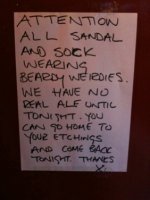 ATTENTION
ALL SANDAL
AND SOCK
WEARING
BEARDY WEIRDIES.
WE HAVE NO
REAL ALE UNTIL
TONIGHT. YOU
CAN GO HOME TO
YOUR ETCHINGS
AND COME BACK
TONIGHT. THANKS
X